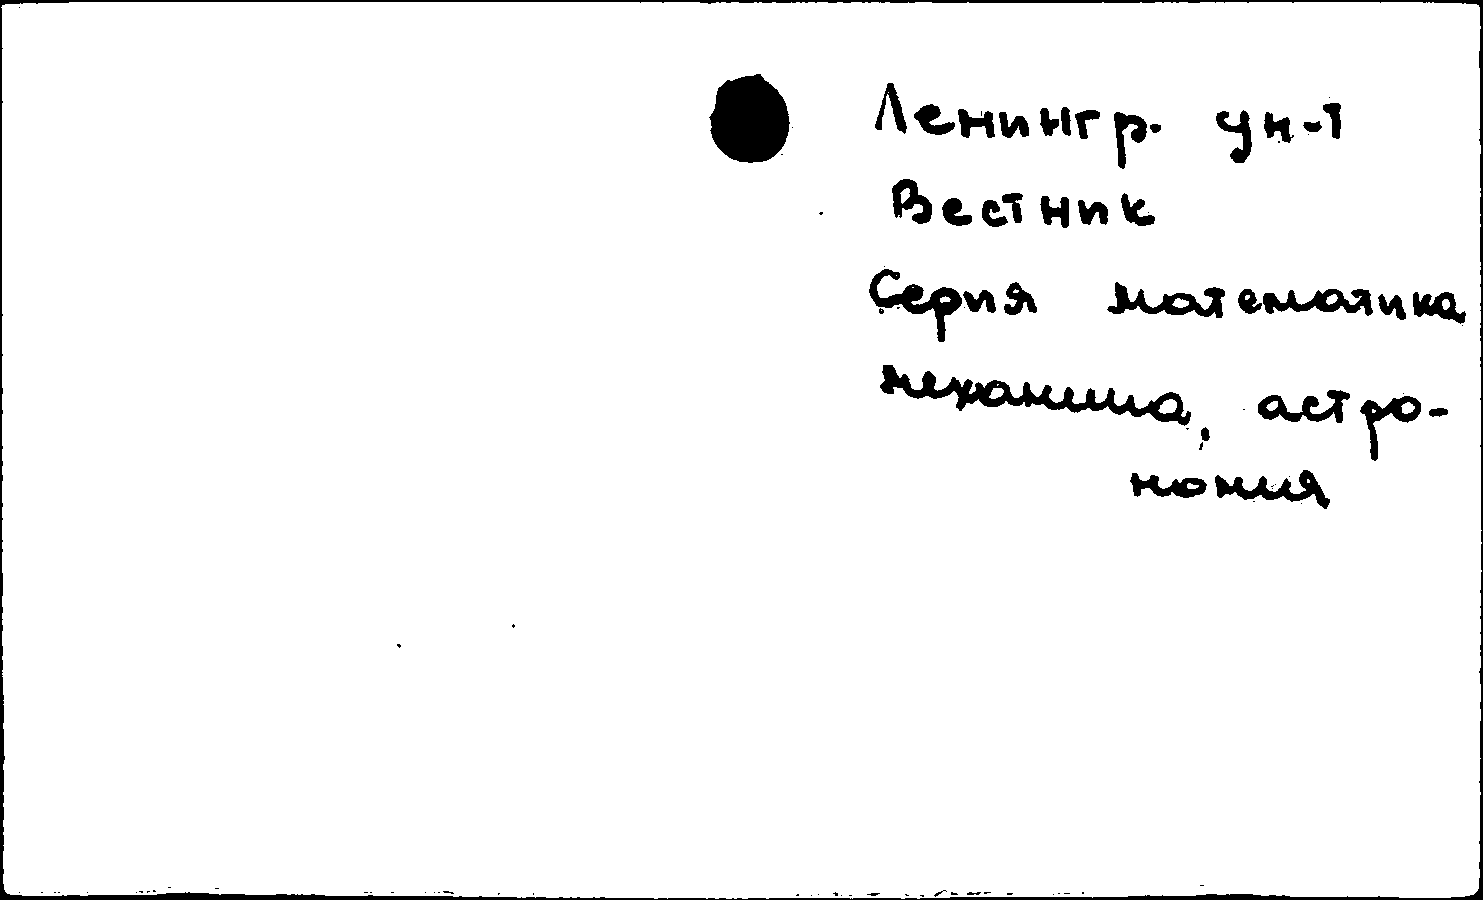 Ленингр. ун-т
Вестник
Серия математика
механика, астро-
номия